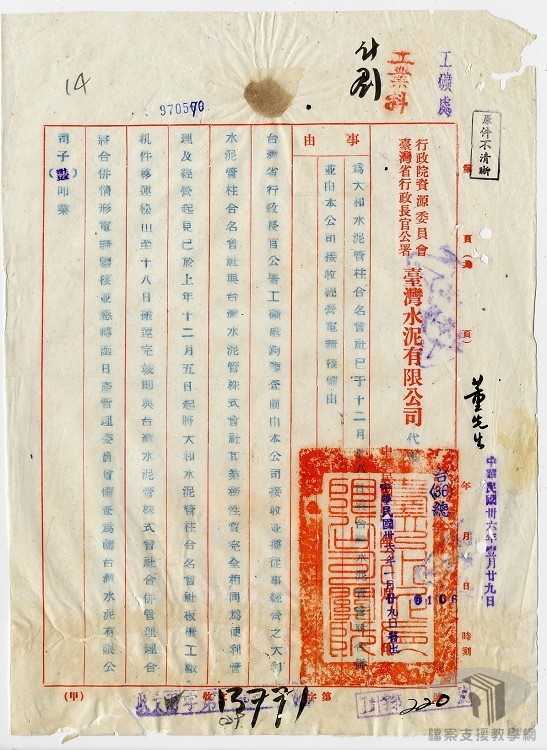 工礦處
原件不清晰
工業科
14
970570
行政院資源委員會
臺灣省行政長官公署
臺灣水泥有限公司
代電
事由
為大和水泥管柱合名會社已于十二月
並由本公司接收經營電請核備由
董先生
中華民國卅六年壹月廿九日
年 月 日 時
台(36)總
0106
中華民國卅六年一月廿九日
台灣省行政長官公署工礦處
前由本公司接收並繼從事經營之大和
水泥管柱合名會社與台灣水泥管株式會社其業務性質完全相同為便利管
理及經營起見已於上年十二月五日起將大和水泥管柱合名會社板橋工廠
机件移運松山至十八日遷運完竣即與台灣水泥管株式會社合併管理理合
將合併情形電請鑒核並懇轉函日產管理委員會備查為禱台灣水泥有限公
司子(豔)叩業
(甲)
收文
字第
13791
220
檔案支援教學網